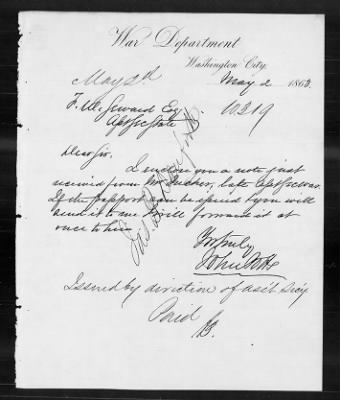 War Department
Washington City,
May 2 1863
May 5th
F. W. Seward Esq 10.219
Asst Sec State
Dear Sir.
I enclose you a note just
received from Mr Tucker, late Asst Sec War.
If the passport can be issued & you will
send it to me I will forward it at
once to him.
Yrs truly
John Potts
Issued by direction of Asst Sec'y
Paid
B.